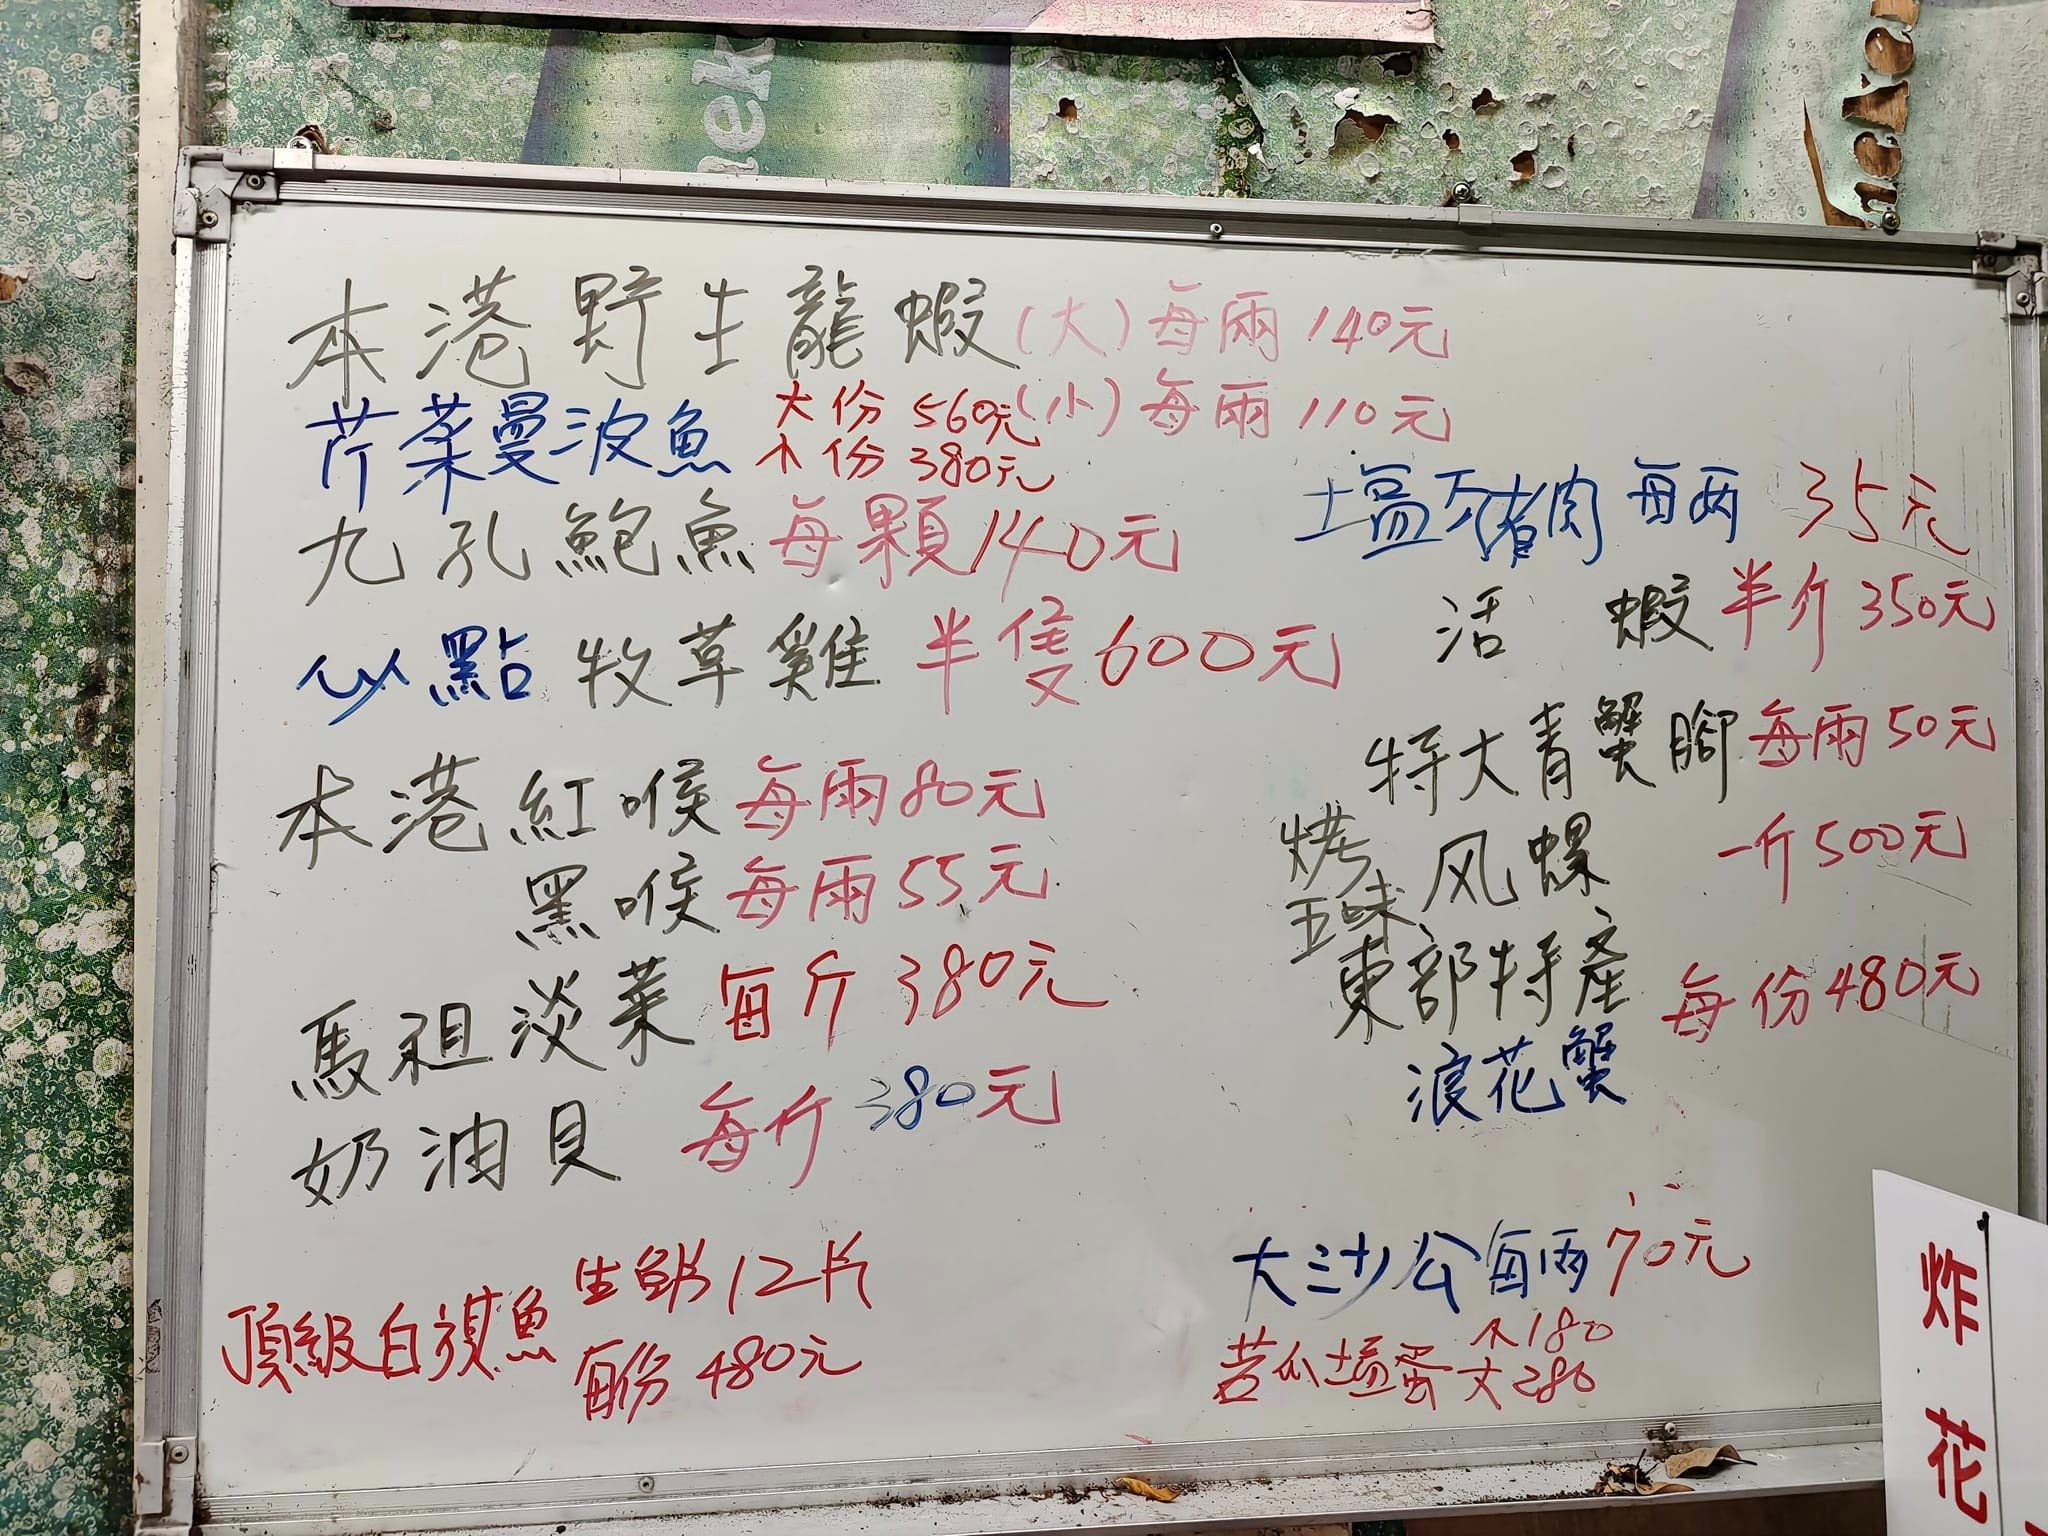 本港野生龍蝦(大)每兩140元
(小)每兩110元
芹菜曼波魚 大份 560元
小份 380元
九孔鮑魚每顆140元
必點 牧草雞 半隻600元
本港紅喉每兩80元
黑喉每兩55元
馬祖淡菜 每斤 380元
奶油貝 每斤 380元
頂級白旗魚 生魚片 12片
每份 480元
塩豬肉 每两 35元
活 蝦 半斤 350元
特大青蟹腳 每兩50元
烤 风螺 一斤500元
五味
東部特產 每份480元
浪花蟹
大沙公 每两 70元
苦瓜塩蛋 小180
大280
炸
花
nek